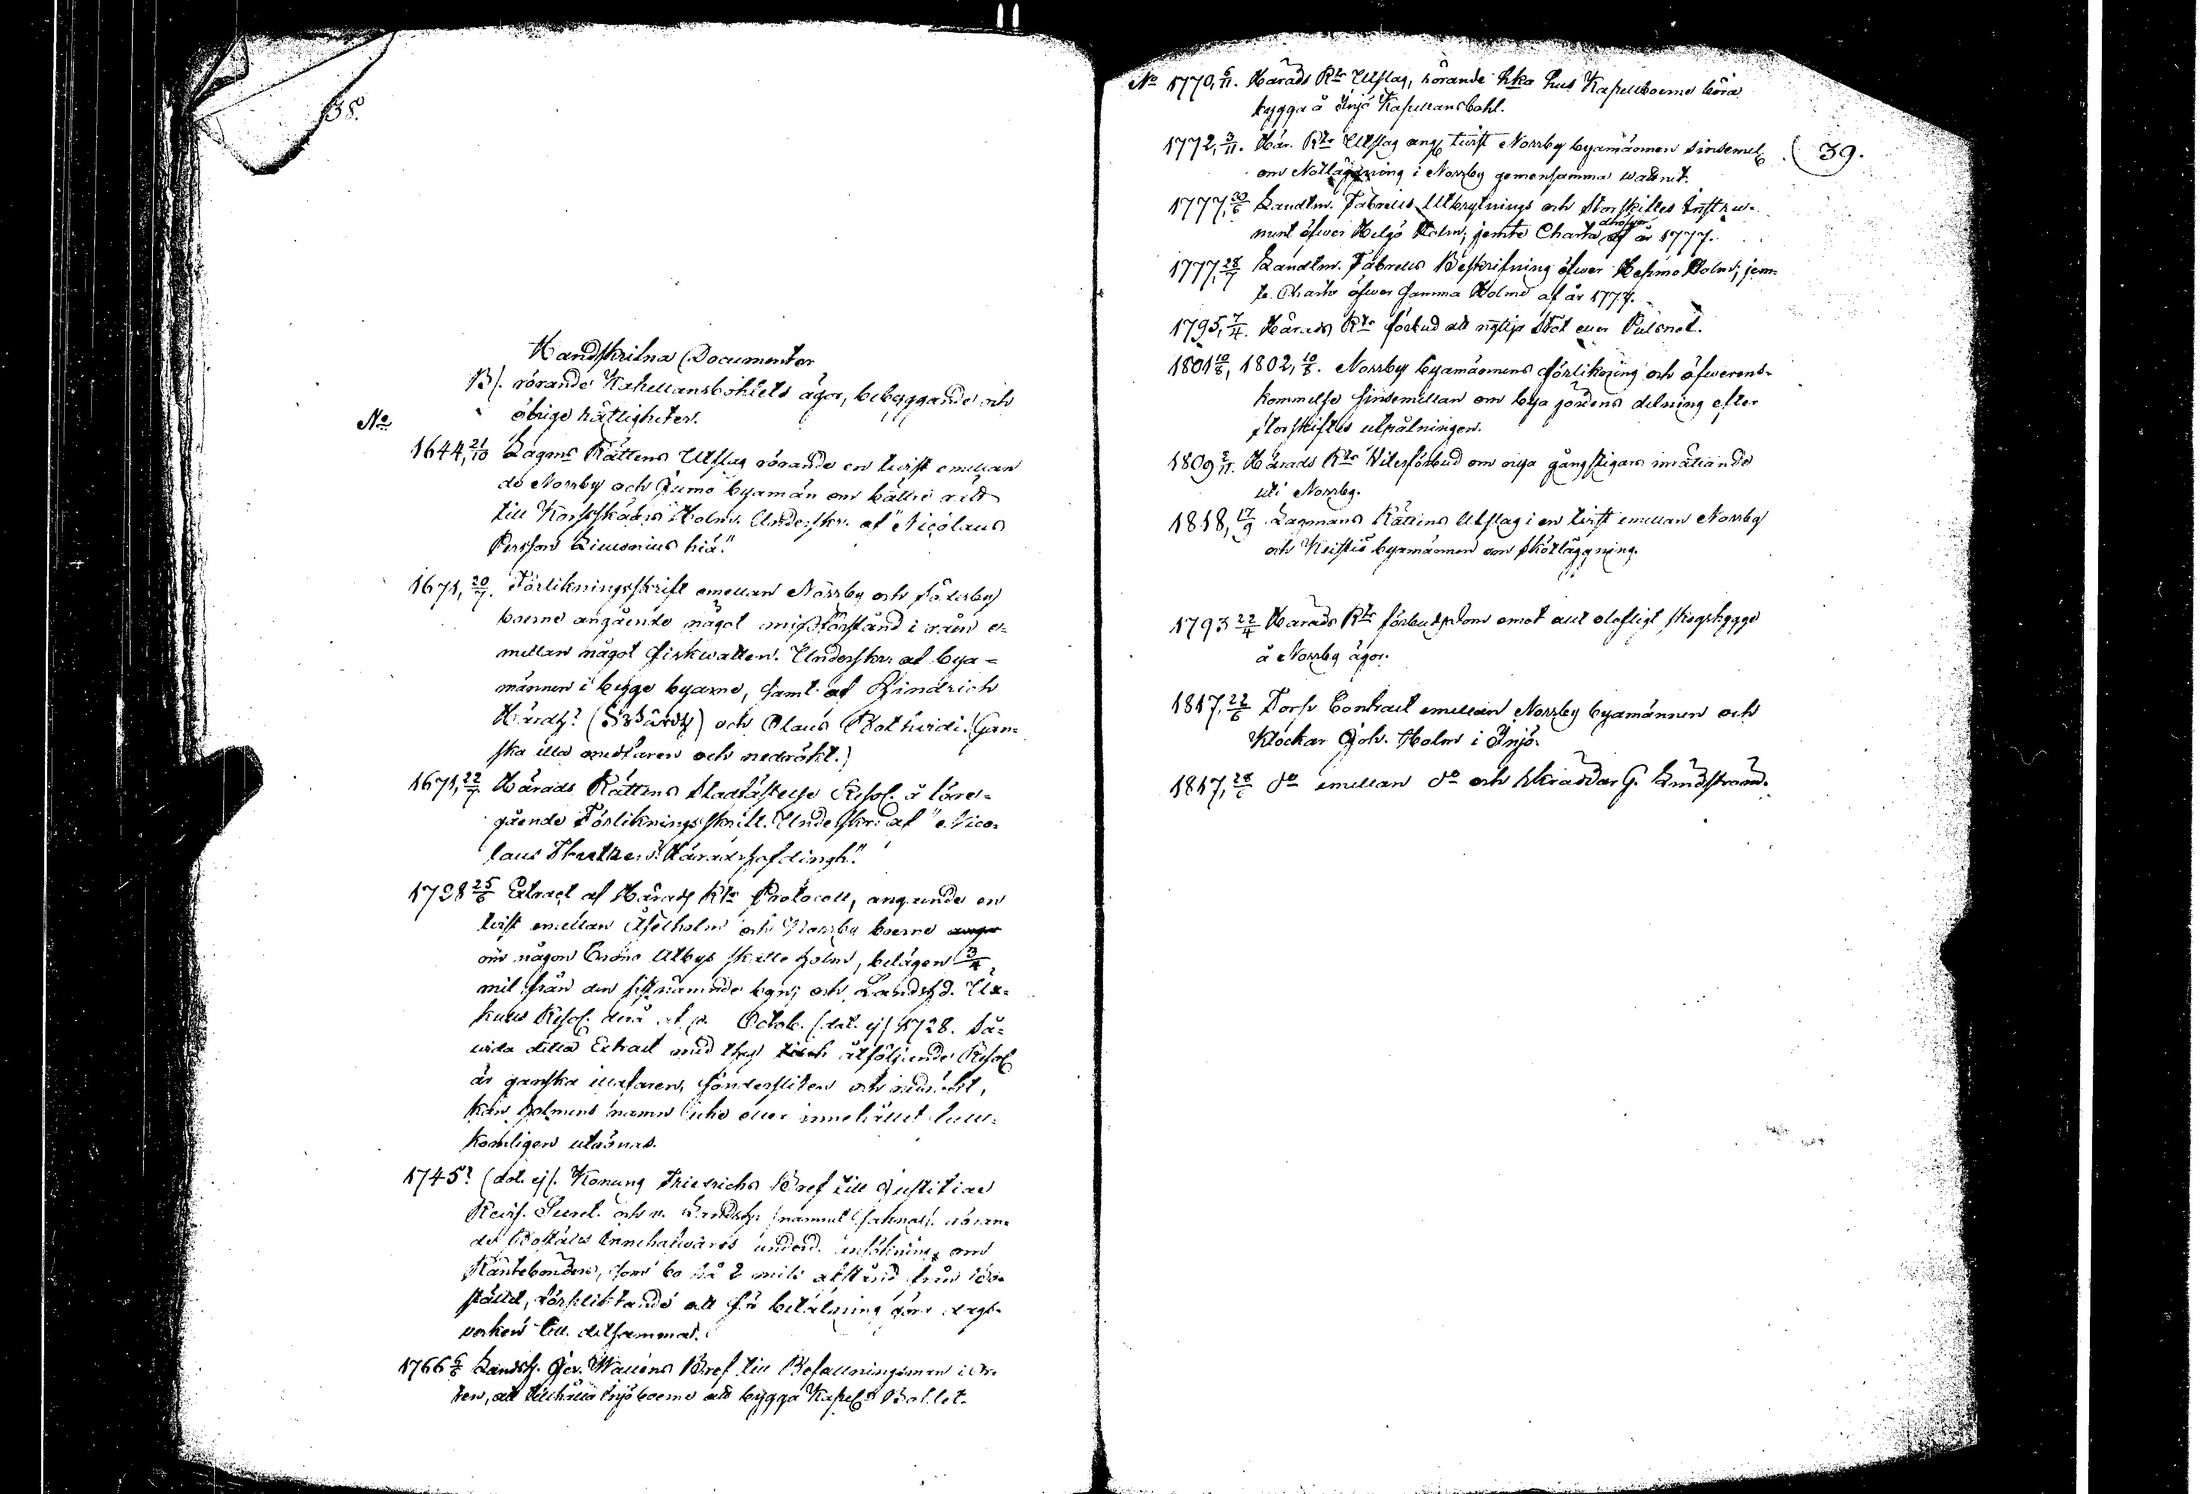 38.
Handskrifna Documenter
B/. rörande Kapellansbohlets ägor, bebyggande och
öfrige rättigheter.
No
1644, 21/10 Lagms Rättens Utslag rörande en twist emellan
de Norrby och Jurmo byamän om bättre rätt
till Korsskärs Holm. Underskr. af "Nicolaus
Persson
1671, 20/7. Förlikningsskrift emellan Norrby och Söderby
boerne angående något missförstånd i råen e-
mellan något fiskwatten. Underskr. af bya-
männen i begge byarne, samt af Hindrich
Härdh? och Olaus Bothvidi. (Gan-
ska illa medfaren och nedrökt.)
1671, 22/7 Härads Rättens Stadfästelse Resol. å före-
gående Förlikningsskrift. Underskr. af "Nico-
laus Häradzhöfdingh."
1728 25/6 Extract af Härads Rts Protocoll, angående en
twist emellan Åselholm och Norrby boerne
om någon Enönö Utbys skatte holm, belägen 3/4
mil från den sistnämnde byn; och Landshd.
Resol. derå af Octob. (dat. ej) 1728. Så-
wida detta Extract med thy åtföljande Resol.
är ganska illafaren, sönderfliten och nedrökt,
kan holmens namn icke eller innehållet full-
komligen utrönas.
1745? (dat. ej). Konung Friedrichs Bref till Justitiae
Revis. Secret. och Landsh. (namnet saknas). röran-
de Boställs Innehafwares underd. ansökning om
Räntebönders, som bo på 2 mils afstånd från bo-
stället, förpliktande att få betalning för dags-
verken till detsamma.
1766 6/2 Landsh. Jer. Walléns Bref till Befallningsman i Or-
ten, att tillhålla Iniöboerne att bygga Kapels Bohlet.
No 1770, 6/11. Härads Rts Utslag, rörande hka hus Kapellboerne böra
bygga å Iniö Kapellansbohl.
1772, 3/11. Här. Rts Utslag ang. twist Norrby byamännen sinsemel.
om Notläggning i Norrby gemensamma wattnet.
39.
1777, 30/6 Landtm. Fabreus Utbrytnings och Storskiftes Instru-
ment öfwer Helgö Holm, jemte Charta deröfver af år 1777.
1777, 28/7 Landtm. Fabreus Beskrifning öfwer Hepmo Holm; jem-
te Charta öfwer samma Holme af år 1777.
1795, 7/4. Härads Rts förbud att nyttja Stöt eller Pulsnot.
1801 10/6, 1802, 10/6. Norrby byamännens förlikning och öfwerens-
kommelse sinsemellan om bya jordens delning efter
storskiftes utpålningen.
1809 2/11. Härads Rts Vitesförbud om nya gångstigars inrättande
uti Norrby.
1818, 17/9 Lagmans Rättens Utslag i en twist emellan Norrby
och Keistiö byamännen om skötläggning.
1793 22/4 Härads Rts förbudsdom emot allt olofligt skogshygge
å Norrby ägor.
1817, 28/6 Torp Contract emellan Norrby byamännen och
Klockar Joh. Holm i Iniö.
1817, 28/6 do emellan do och Skräddar G. Lindström.